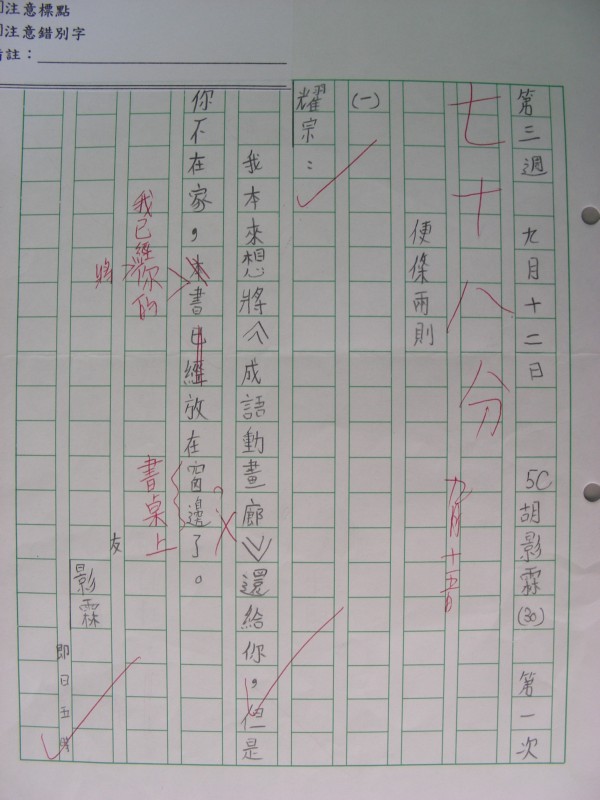 注意標點
注意錯別字
備註：
第三週 九月十二日 5C胡影霖(30) 第一次
七十八分
九月十五日
便條兩則
(一)
耀宗：
我本來想將《成語動畫廊》還給你，但是
你不在家，本書已經放在窗邊了。
我已經你的
將
書桌上
友
影霖
即日五時